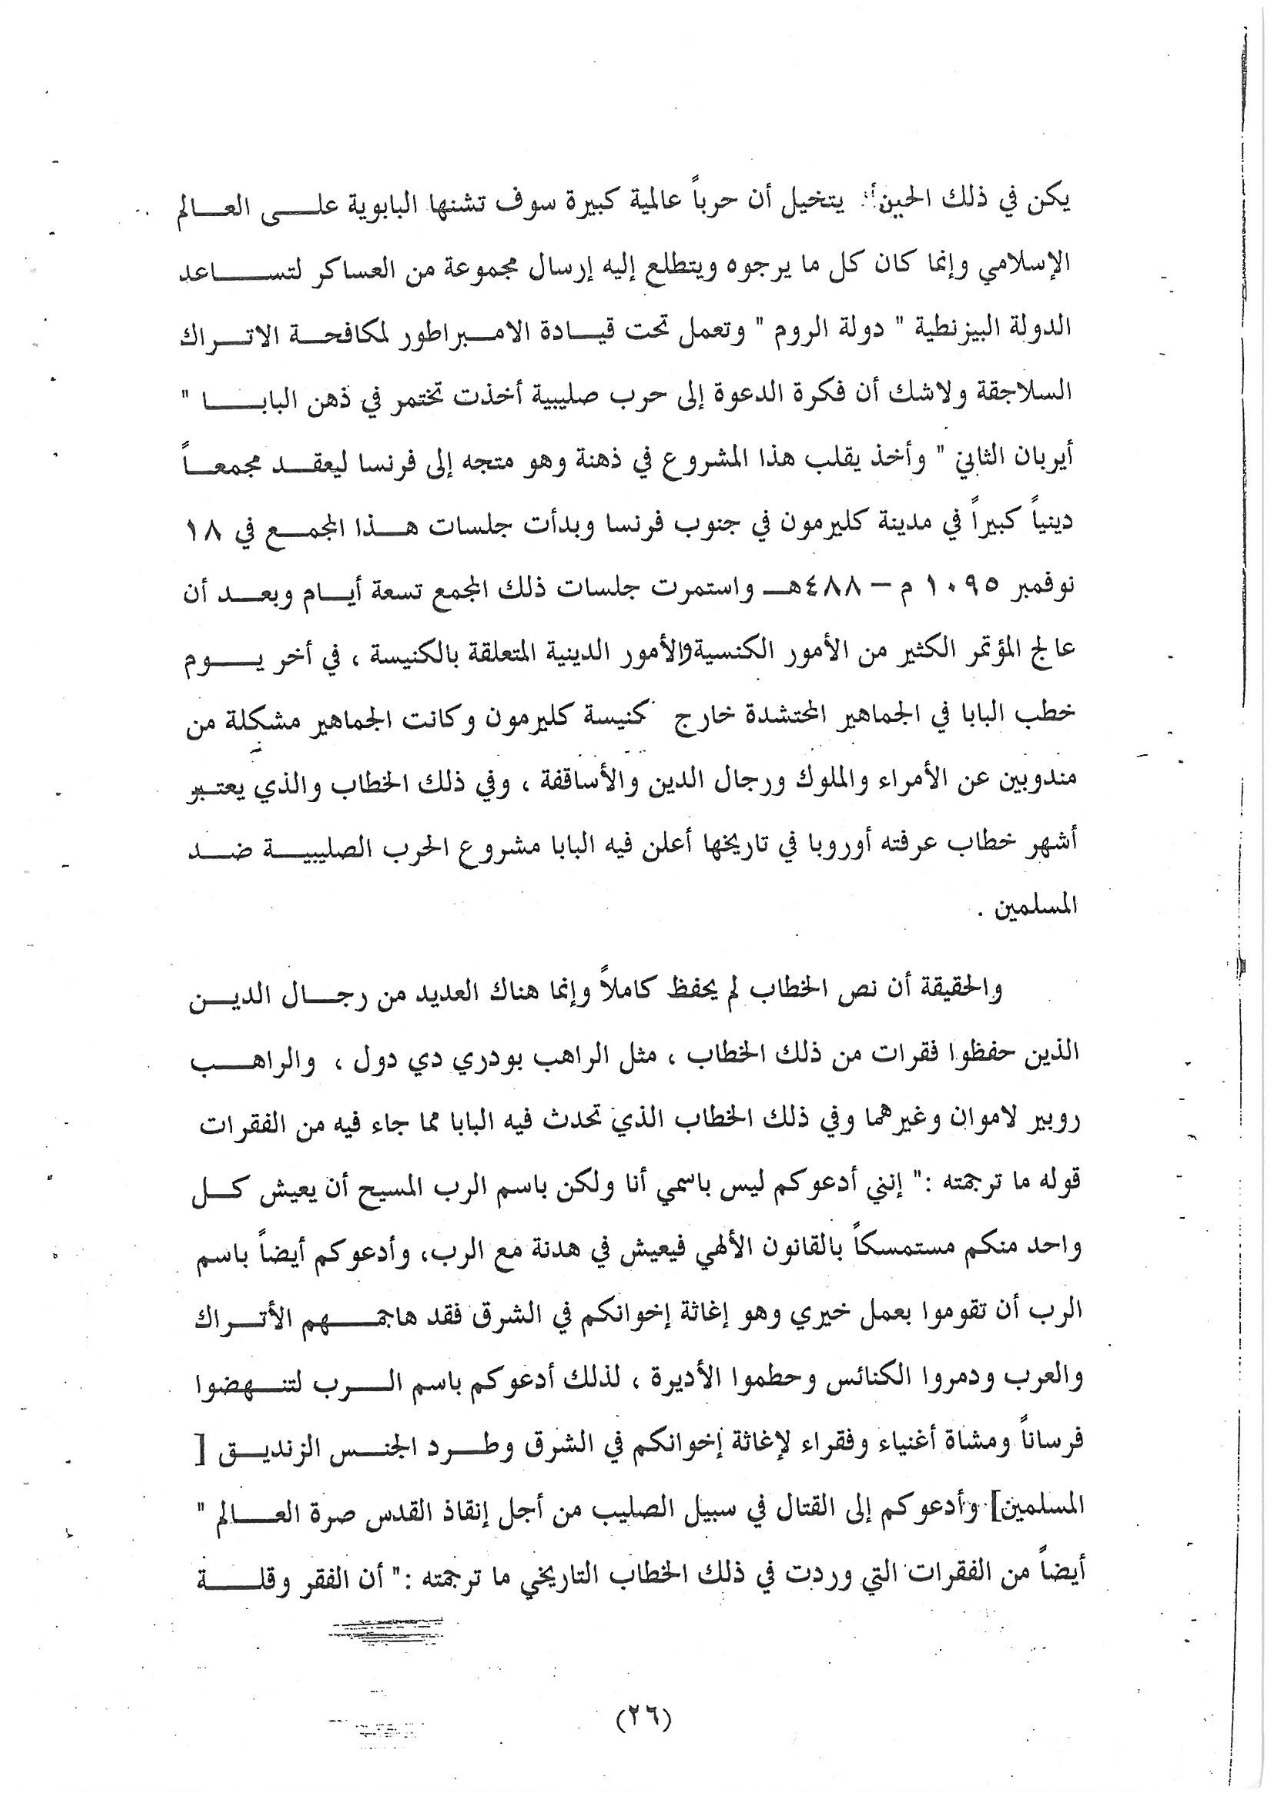 يكن في ذلك الحين أن يتخيل أن حرباً عالمية كبيرة سوف تشنها البابوية على العالم
الإسلامي وإنما كان كل ما يرجوه ويتطلع إليه إرسال مجموعة من العساكر لتساعد
الدولة البيزنطية " دولة الروم " وتعمل تحت قيادة الامبراطور لمكافحة الاتراك
السلاجقة ولاشك أن فكرة الدعوة إلى حرب صليبية أخذت تختمر في ذهن البابا "
أيربان الثاني " وأخذ يقلب هذا المشروع في ذهنة وهو متجه إلى فرنسا ليعقد مجمعاً
دينياً كبيراً في مدينة كليرمون في جنوب فرنسا وبدأت جلسات هذا المجمع في ١٨
نوفمبر ١٠٩٥ م – ٤٨٨هـ واستمرت جلسات ذلك المجمع تسعة أيام وبعد أن
عالج المؤتمر الكثير من الأمور الكنسية والأمور الدينية المتعلقة بالكنيسة ، في أخر يوم
خطب البابا في الجماهير المحتشدة خارج كنيسة كليرمون وكانت الجماهير مشكلة من
مندوبين عن الأمراء والملوك ورجال الدين والأساقفة ، وفي ذلك الخطاب والذي يعتبر
أشهر خطاب عرفته أوروبا في تاريخها أعلن فيه البابا مشروع الحرب الصليبية ضد
المسلمين .
والحقيقة أن نص الخطاب لم يحفظ كاملاً وإنما هناك العديد من رجال الدين
الذين حفظوا فقرات من ذلك الخطاب ، مثل الراهب بودري دي دول ، والراهب
روبير لاموان وغيرهما وفي ذلك الخطاب الذي تحدث فيه البابا مما جاء فيه من الفقرات
قوله ما ترجمته :" إنني أدعوكم ليس باسمي أنا ولكن باسم الرب المسيح أن يعيش كل
واحد منكم مستمسكاً بالقانون الألهي فيعيش في هدنة مع الرب، وأدعوكم أيضاً باسم
الرب أن تقوموا بعمل خيري وهو إغاثة إخوانكم في الشرق فقد هاجمهم الأتراك
والعرب ودمروا الكنائس وحطموا الأديرة ، لذلك أدعوكم باسم الرب لتنهضوا
فرساناً ومشاة أغنياء وفقراء لإغاثة إخوانكم في الشرق وطرد الجنس الزنديق [
المسلمين] وأدعوكم إلى القتال في سبيل الصليب من أجل إنقاذ القدس صرة العالم "
أيضاً من الفقرات التي وردت في ذلك الخطاب التاريخي ما ترجمته :" أن الفقر وقلة
(٢٦)